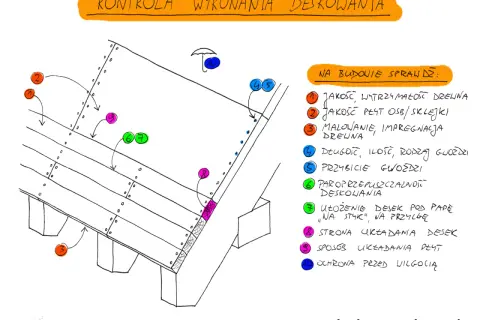 KONTROLA WYKONANIA DESKOWANIA
NA BUDOWIE SPRAWDŹ:
1 JAKOŚĆ, WYTRZYMAŁOŚĆ DREWNA
2 JAKOŚĆ PŁYT OSB/SKLEJKI
3 MALOWANIE, IMPREGNACJA
DREWNA
4 DŁUGOŚĆ, ILOŚĆ, RODZAJ GWOŹDZI
5 PRZYBICIE GWOŹDZI
6 PAROPRZEPUSZCZALNOŚĆ
DESKOWANIA
7 UŁOŻENIE DESEK POD PAPĘ
„NA STYK", NA PRZYLGĘ
STRONA UKŁADANIA DESEK
SPOSÓB UKŁADANIA PŁYT
OCHRONA PRZED WILGOCIĄ
2
1
6 7
4 5
3